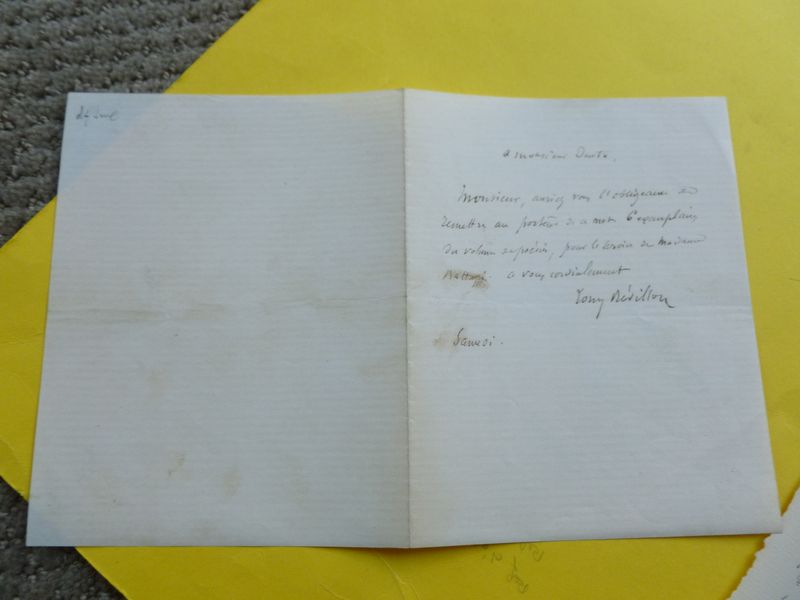 a monsieur Dentu,
Monsieur, auriez vous l'obligeance de
remettre au porteur de ce mot 6 exemplaires
du volume de poésies, pour le service de madame
a vous cordialement
Tony Révillon
Samedi.